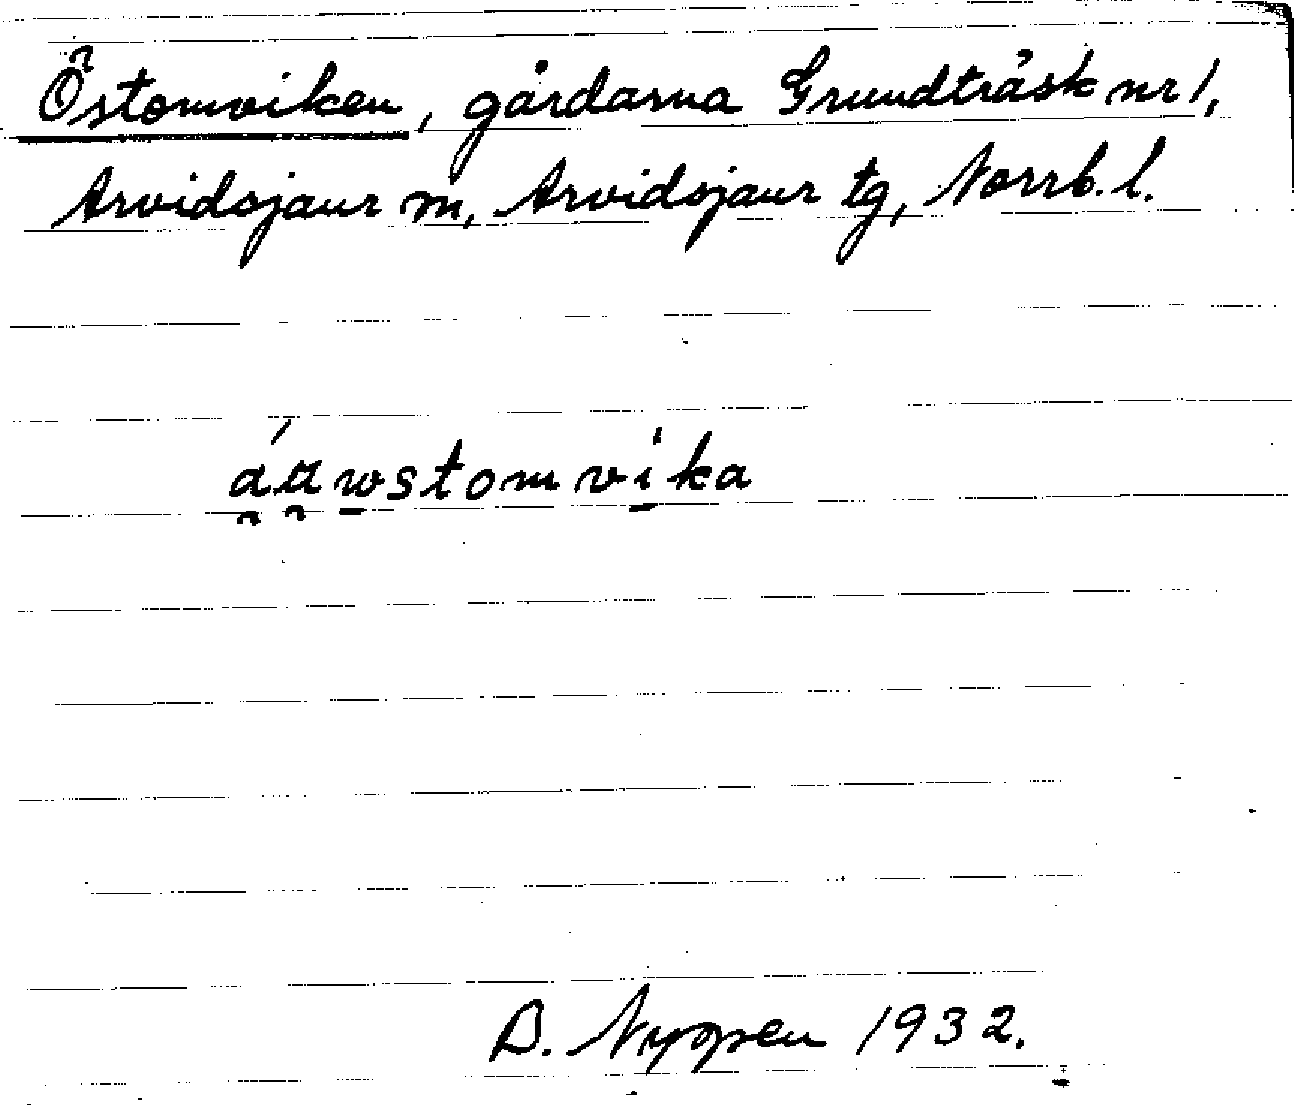 Östomviken, gårdarna Grundträsk nr 1,
Arvidsjaur m, Arvidsjaur tg, Norrb. l.
B. Nyppen 1932.